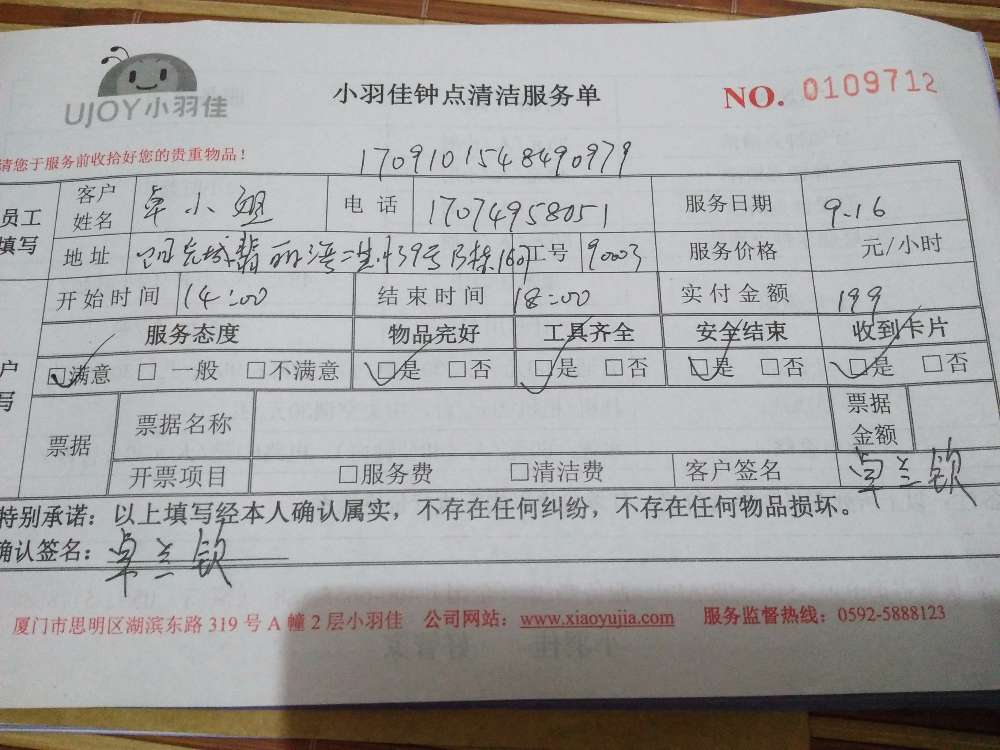 UJOY小羽佳
小羽佳钟点清洁服务单
NO. 0109712
请您于服务前收拾好您的贵重物品！
1709101548490979
员工填写 客户姓名 卓小姐 电话 17074958051 服务日期 9.16
地址 阳光城翡丽湾二期39号B栋1607 工号 90003 服务价格 元/小时
开始时间 14:00 结束时间 18:00 实付金额 199
服务态度 物品完好 工具齐全 安全结束 收到卡片
户 写 □满意 □一般 □不满意 □是 □否 □是 □否 □是 □否 □是 □否
票据 票据名称 票据金额
开票项目 □服务费 □清洁费 客户签名 卓兰钦
特别承诺：以上填写经本人确认属实，不存在任何纠纷，不存在任何物品损坏。
确认签名：卓兰钦
厦门市思明区湖滨东路 319 号 A 幢 2 层小羽佳 公司网站：www.xiaoyujia.com 服务监督热线：0592-5888123